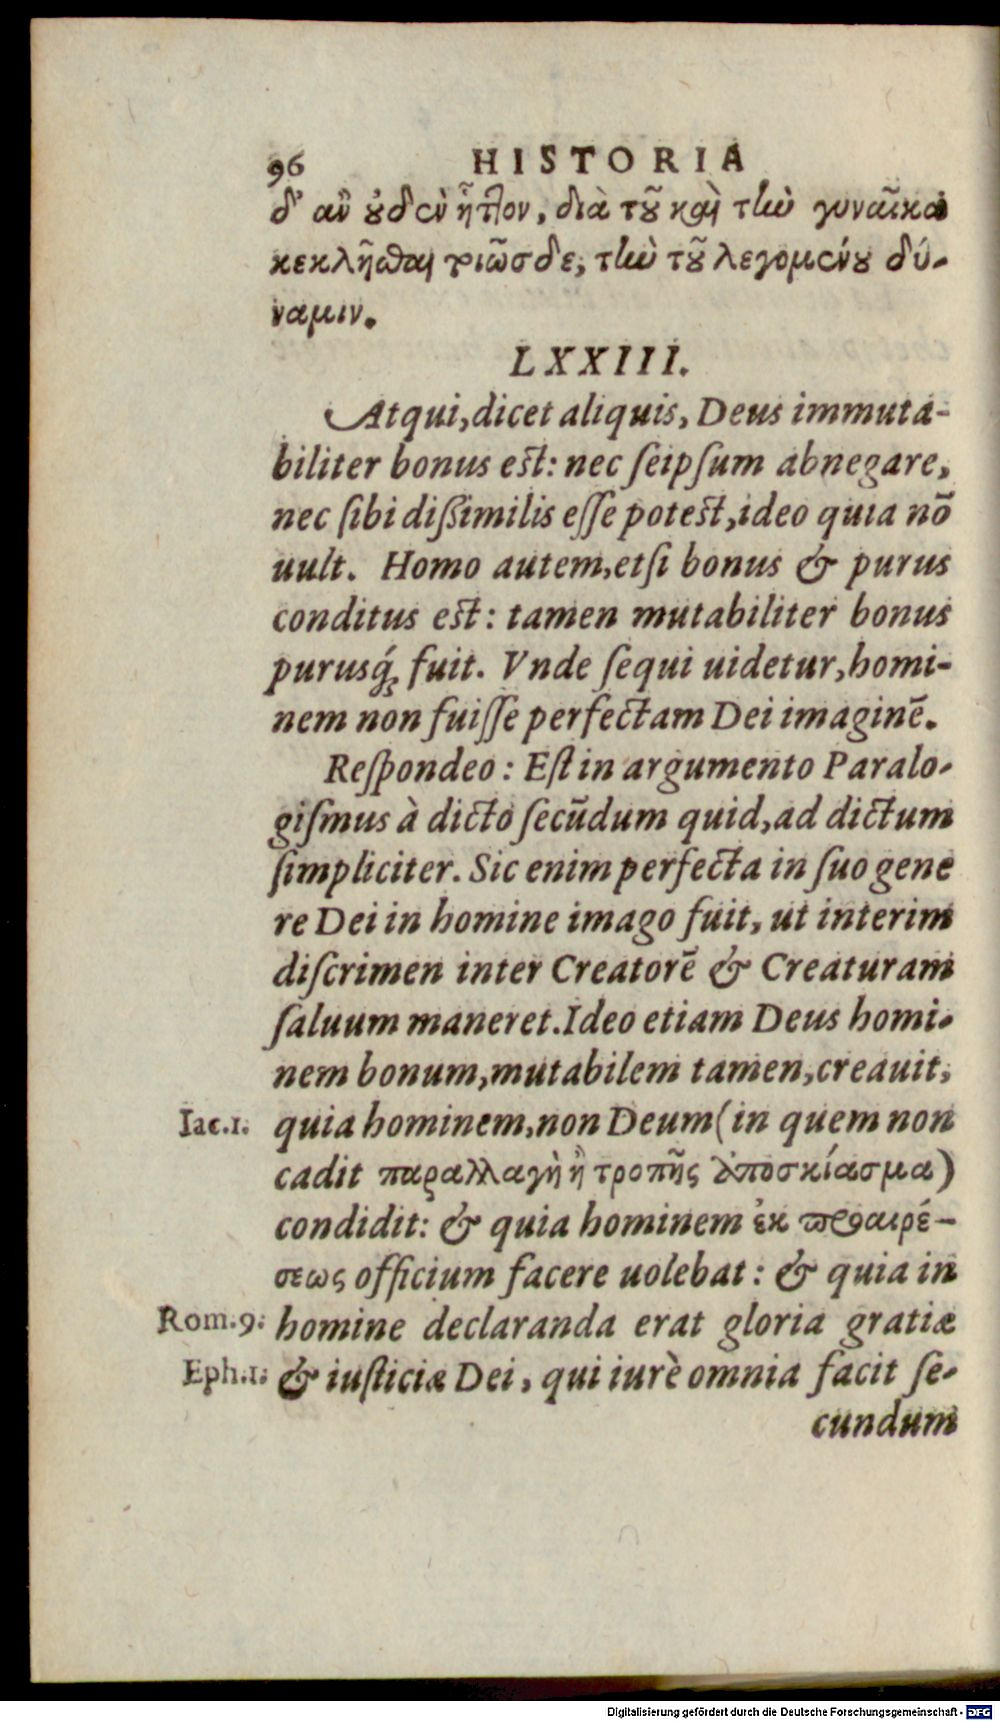 96 HISTORIA
δ' ἂν οὐδὲν ἧττον, διὰ τοῦ καὶ τὴν γυναῖκα
κεκλῆσθαι τριῶσδε, τὴν τοῦ λεγομένου δύ-
ναμιν.
LXXIII.
Atqui, dicet aliquis, Deus immuta-
biliter bonus est: nec ſeipſum abnegare,
nec ſibi dißimilis eſſe potest, ideo quia nō
uult. Homo autem, etſi bonus & purus
conditus est: tamen mutabiliter bonus
purusq́; fuit. Vnde ſequi uidetur, homi-
nem non fuiſſe perfectam Dei imaginē.
Reſpondeo: Eſt in argumento Paralo-
giſmus à dicto ſecūdum quid, ad dictum
ſimpliciter. Sic enim perfecta in ſuo gene
re Dei in homine imago fuit, ut interim
diſcrimen inter Creatorē & Creaturam
ſaluum maneret. Ideo etiam Deus homi-
nem bonum, mutabilem tamen, creauit,
Iac.1. quia hominem, non Deum (in quem non
cadit παραλλαγὴ ἢ τροπῆς ἀποσκίασμα)
condidit: & quia hominem ἐκ προαιρέ-
σεως officium facere uolebat: & quia in
Rom.9. homine declaranda erat gloria gratiæ
Eph.1. & iuſticiæ Dei, qui iurè omnia facit ſe-
cundum
Digitalisierung gefördert durch die Deutsche Forschungsgemeinschaft - DFG